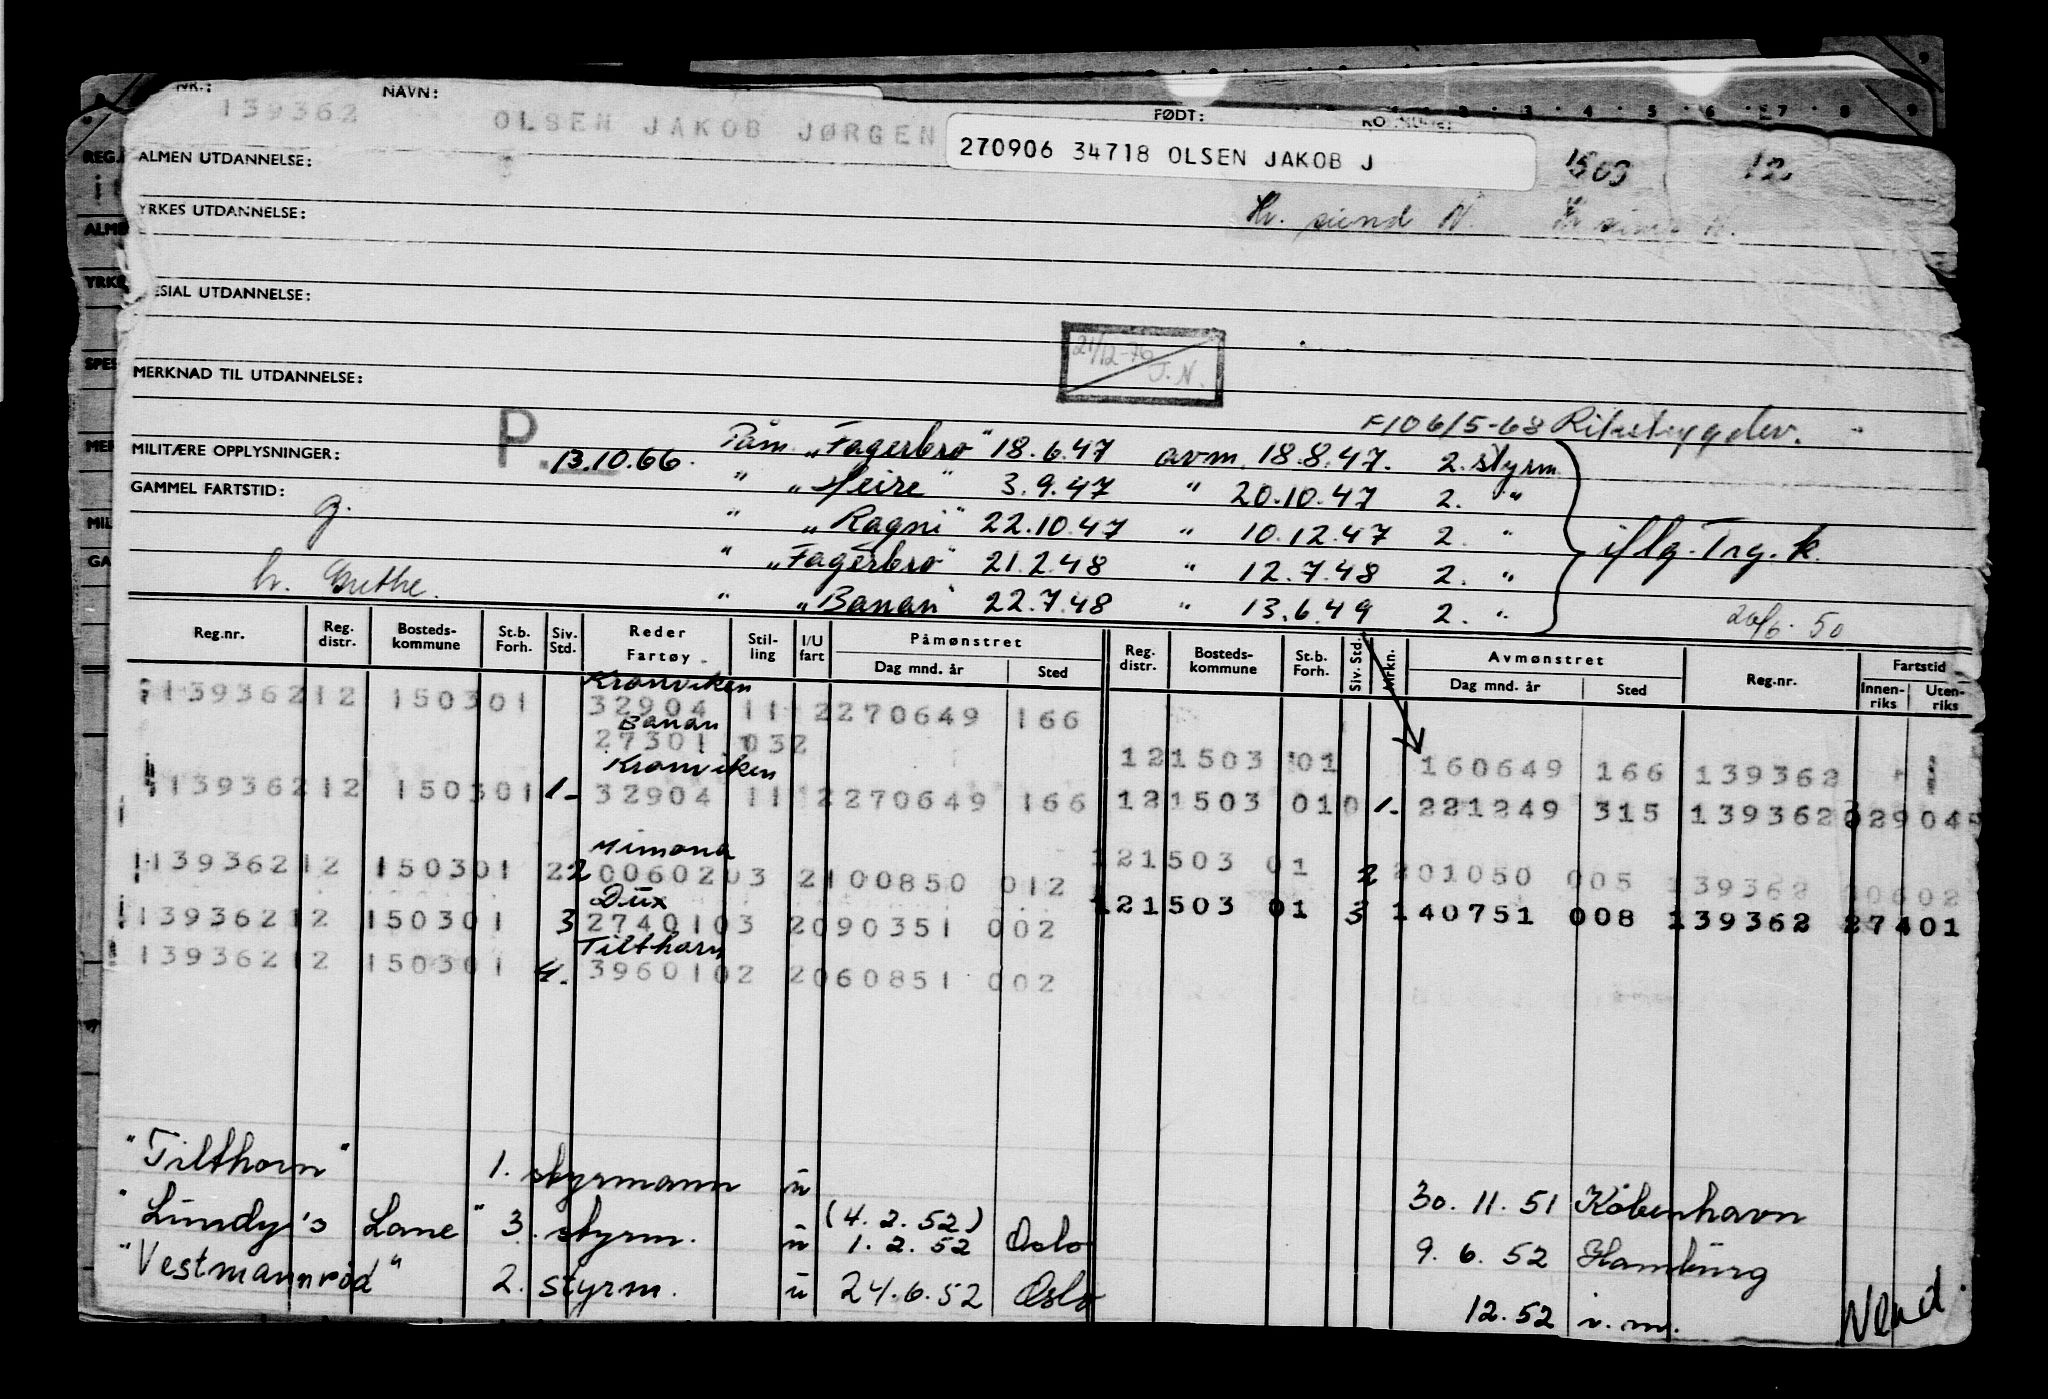 NR.: NAVN: FØDT:
139362 OLSEN JAKOB JØRGEN
270906 34718 OLSEN JAKOB J
1503 12.
ALMEN UTDANNELSE:
YRKES UTDANNELSE: Kr. sund N. Kr sund N.
SPESIAL UTDANNELSE:
21/12-76 J.N.
MERKNAD TIL UTDANNELSE:
MILITÆRE OPPLYSNINGER: P. 13.10.66. Påm. "Fagerbro" 18.6.47 avm. 18.8.47. 2. styrm.
GAMMEL FARTSTID: g. " "Heire" 3.9.47 " 20.10.47 2. "
" "Ragni" 22.10.47 " 10.12.47 2. " iflg. Trg. k.
" "Fagerbro" 21.2.48 " 12.7.48 2. "
h. Grethe. " "Banan" 22.7.48 " 13.6.49 2. " 26/6. 50
Reg.nr. Reg. distr. Bosteds- kommune St.b. Forh. Siv. Std. Reder Fartøy Stil- ling I/U fart Påmønstret Dag mnd. år Sted Reg. distr. Bosteds- kommune St.b. Forh. Siv. Std. Mrkn. Avmønstret Dag mnd. år Sted Reg.nr. Fartstid Innen- riks Uten- riks
Kronviken
139362 12 1503 01 32904 11 2 270649 166
Banan
27301 032 12 1503 01 160649 166 139362
Kronviken
139362 12 1503 01 1- 32904 11 2 270649 166 12 1503 01 0 1- 221249 315 139362 32904
Mimona
139362 12 1503 01 2 2 00602 03 2 100850 012 12 1503 01 2 201050 005 139362 00602
Dux
139362 12 1503 01 3 27401 03 2 090351 002 12 1503 01 3 140751 008 139362 27401
Tilthorn
139362 12 1503 01 4. 39601 02 2 060851 002
"Tilthorn" 1. styrmann u 30.11.51 København
"Lundy's Lane" 3. styrm. u (4.2.52) 1.2.52 Oslo 9.6.52 Hamburg
"Vestmannrød" 2. styrm. u 24.6.52 Oslo 12.52 i.m.
Vend.